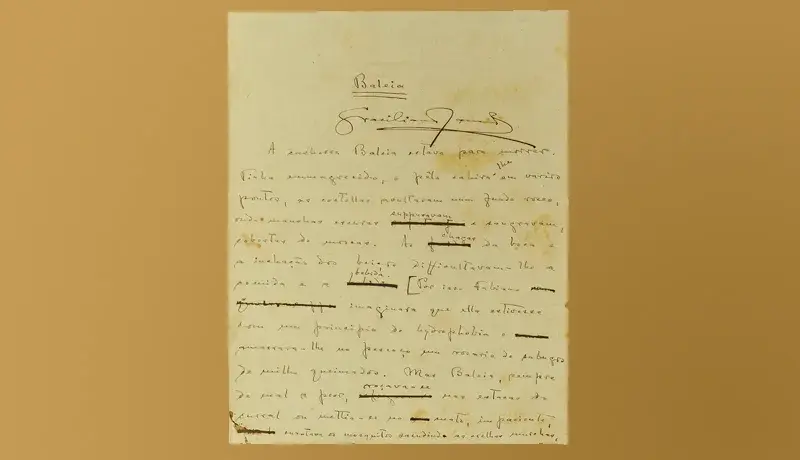 Baleia
Graciliano Ramos
A cachorra Baleia estava para morrer.
Tinha emmagrecido, o pêlo cahira-lhe em varios
pontos, as costellas avultavam num fundo roseo,
onde manchas escuras suppuravam e sangravam,
cobertas de moscas. As chagas da boca e
a inchação dos beiços difficultavam-lhe a
comida e a bebida. [Por isso Fabiano
imaginara que ella estivesse
com um principio de hydrophobia e
amarrara-lhe no pescoço um rosario de sabugos
de milho queimados. Mas Baleia, sempre
de mal a peor, roçava-se nas estacas do
curral ou mettia-se no mato, impaciente,
enxotava os mosquitos sacudindo as orelhas murchas,